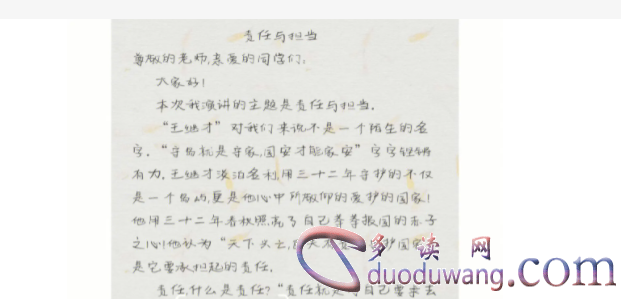 责任与担当
尊敬的老师,亲爱的同学们,
大家好!
本次我演讲的主题是责任与担当.
“王继才”对我们来说不是一个陌生的名
字.“守岛就是守家,国安才能家安”字字铿锵
有力.王继才淡泊名利用三十二年守护的不仅
是一个岛屿,更是他心中所敬仰的爱护的国家!
他用三十二年春秋照亮了自己尊尊报国的赤子
之心!他认为“天下兴亡,匹夫有责”守护国家
是它要承担起的责任.
责任,什么是责任?“责任就是对自己要求去
多读网
duoduwang.com